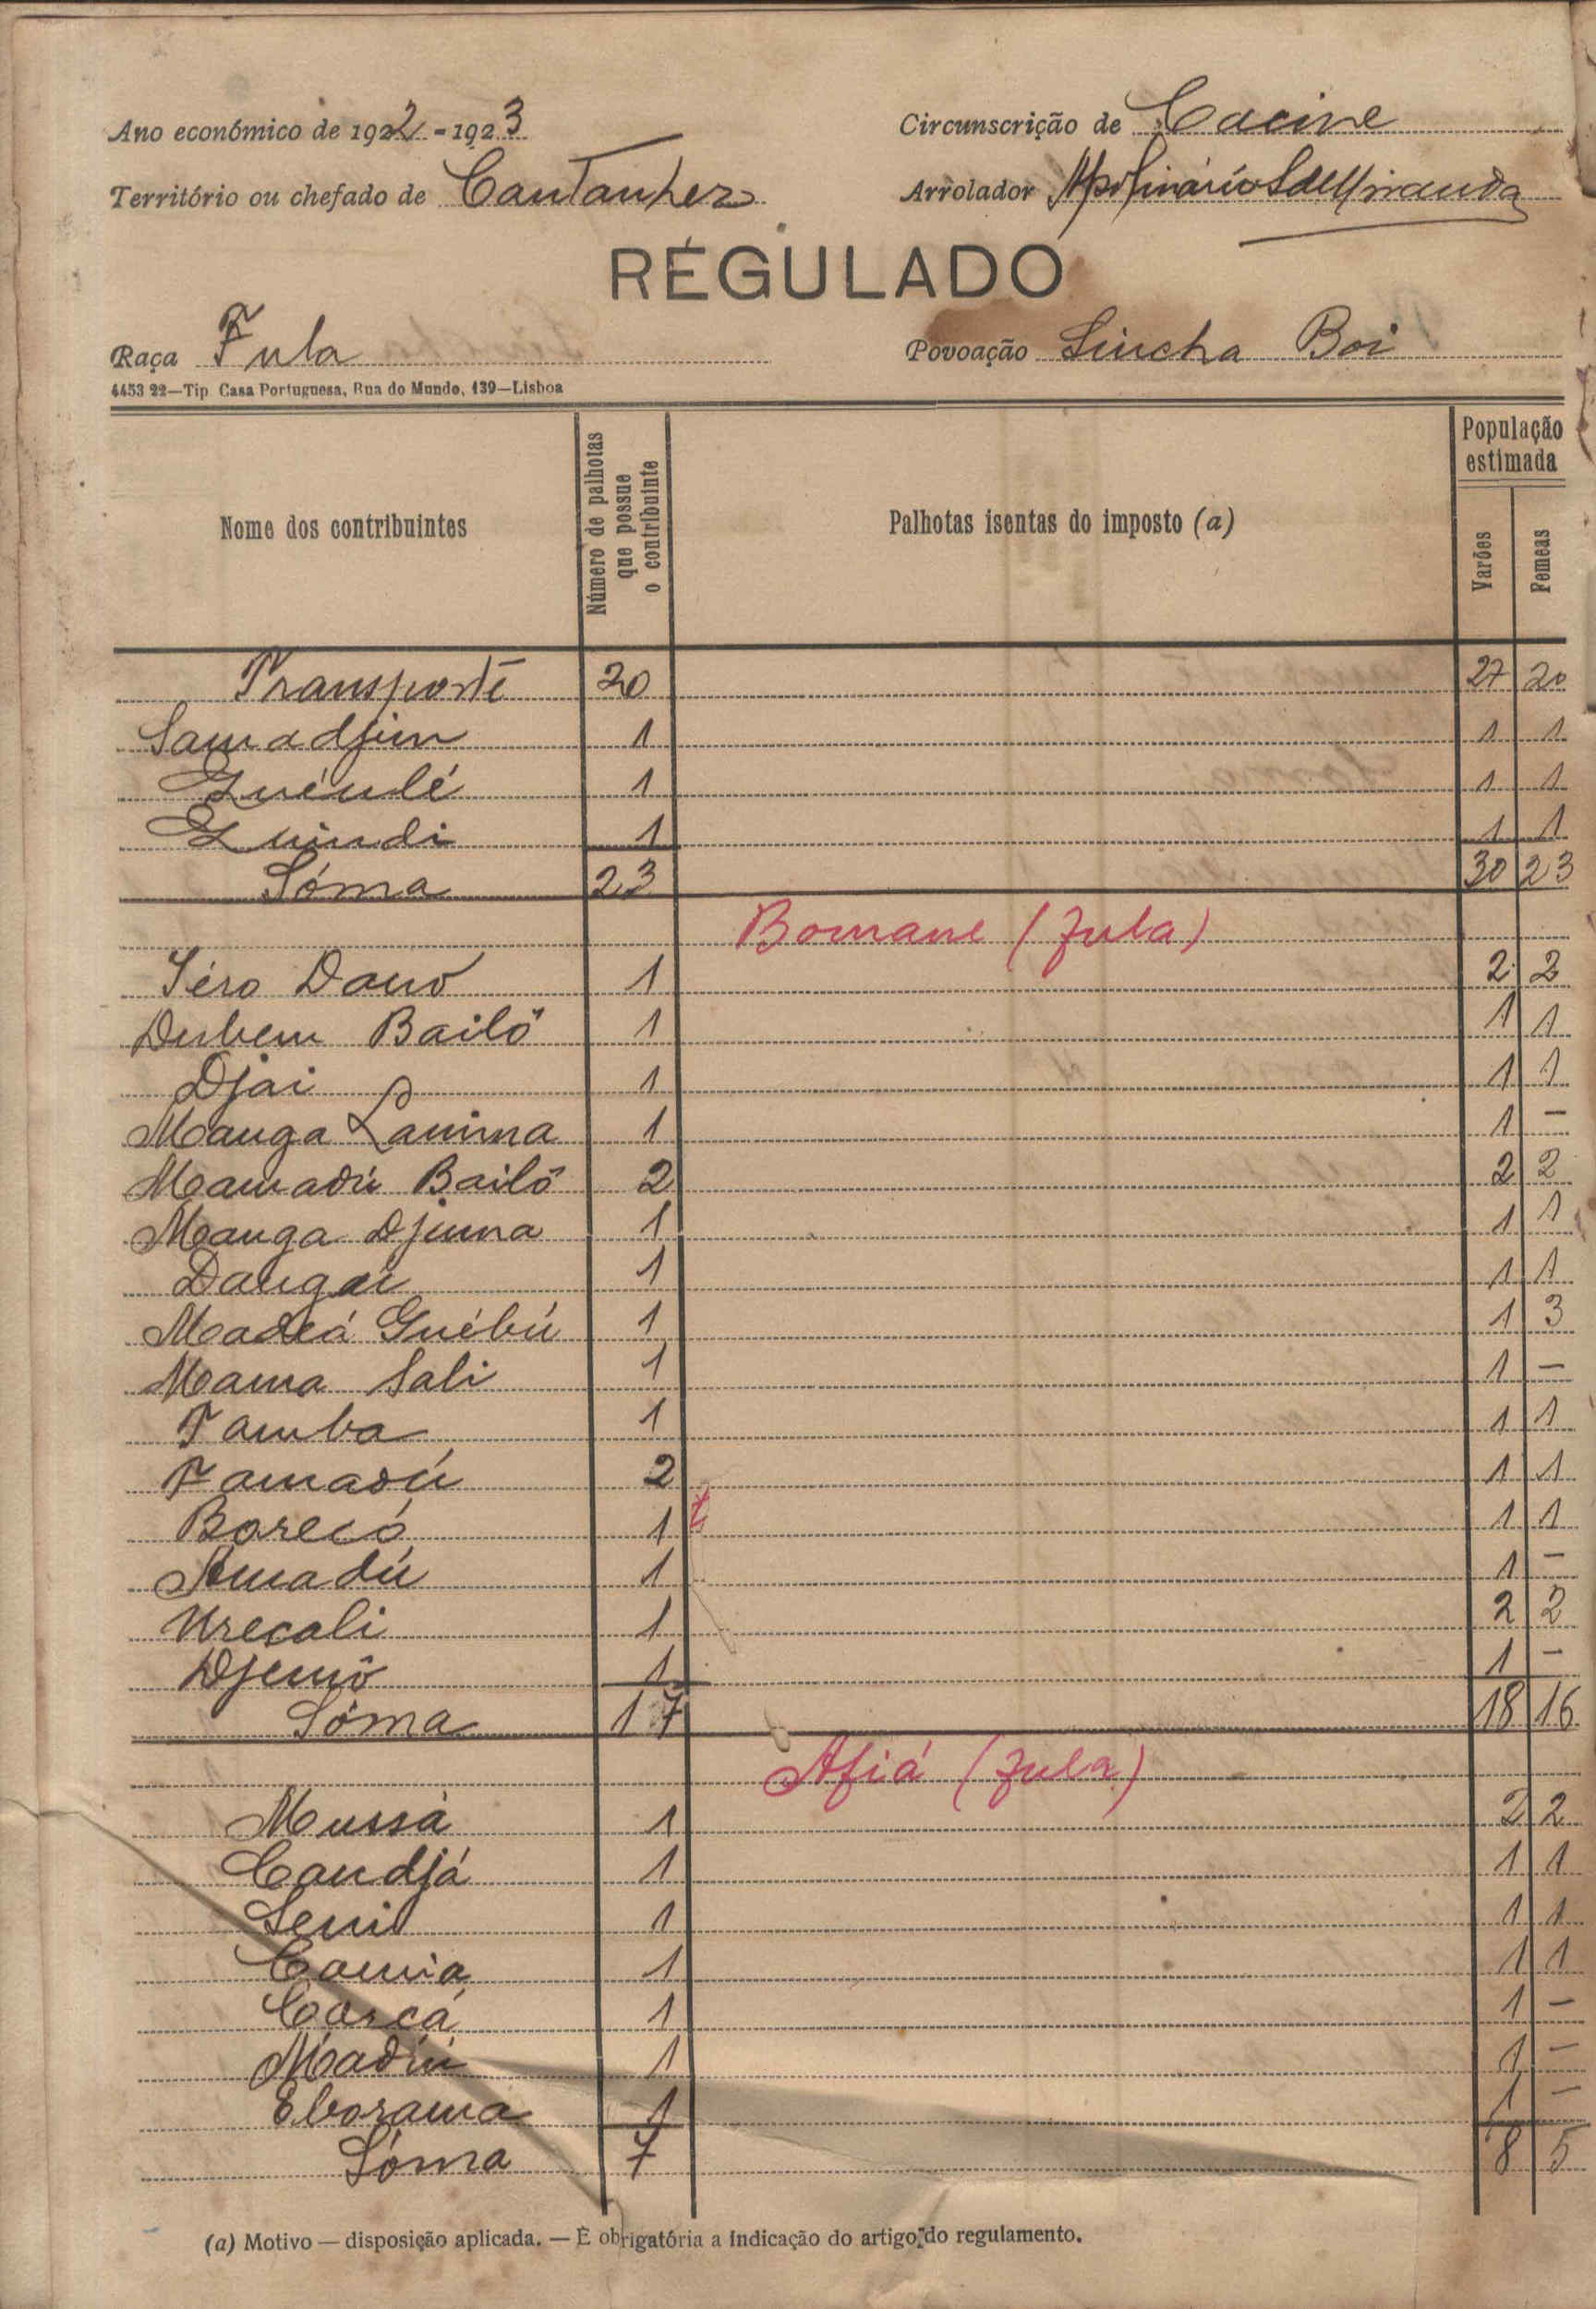 Ano económico de 1922-1923
Circunscrição de Cacine
Território ou chefado de Cantanhez
Arrolador Apolinário S. de Miranda
REGULADO
Raça Fula
Povoação Sincha Boi
4453 22—Tip Casa Portuguesa, Rua do Mundo, 139—Lisboa
Nome dos contribuintes
Número de palhotas que possue o contribuinte
Palhotas isentas do imposto (a)
População estimada
Varões
Femeas
Transporte 20 27 20
Samadjim 1 1 1
Guéulé 1 1 1
Guindi 1 1 1
Sóma 23 30 23
Bomane (fula)
Séro Dauó 1 2 2
Bailó 1 1 1
Djai 1 1 1
Manga Lamina 1 1 —
Mamadú Bailó 2 2 2
Manga Djuma 1 1 1
Dangai 1 1 1
Guébú 1 1 3
Mama Sali 1 1 —
Tamba 1 1 1
Famadú 2 1 1
Borecó 1 1 1
Amadú 1 1 —
Urecali 1 2 2
Djemó 1 1 —
Sóma 17 18 16
Afiá (fula)
Mussá 1 2 2
Candjá 1 1 1
1 1 1
Camia 1 1 1
Carcá 1 1 —
Madiú 1 1 —
Eborama 1 1 —
Sóma 7 8 5
(a) Motivo — disposição aplicada. — É obrigatória a indicação do artigo do regulamento.